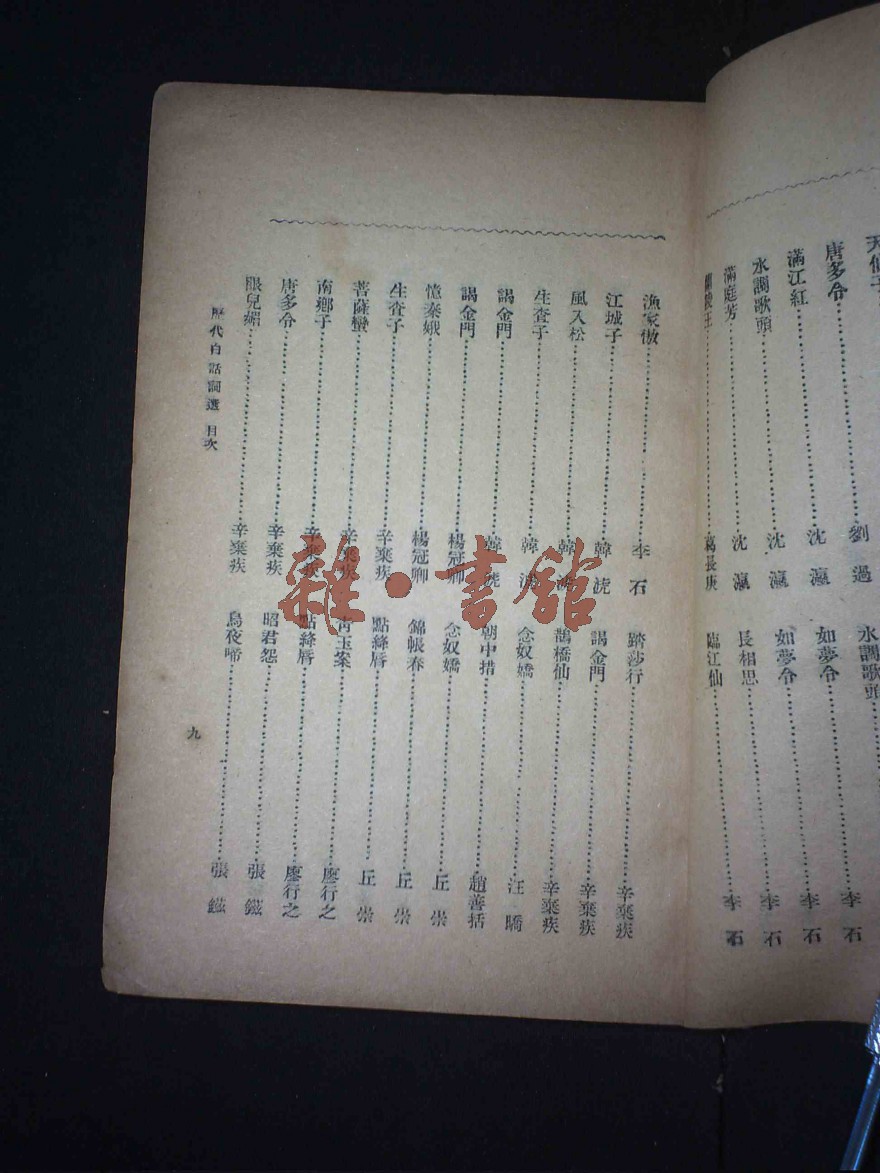 天仙子 劉過 水調歌頭 李石
唐多令 沈瀛 如夢令 李石
滿江紅 沈瀛 如夢令 李石
水調歌頭 沈瀛 長相思 李石
滿庭芳 葛長庚 臨江仙
漁家傲 李石 踏莎行 辛棄疾
江城子 韓淲 謁金門 辛棄疾
風入松 韓淲 鵲橋仙 辛棄疾
生查子 韓淲 念奴嬌 汪
謁金門 韓淲 朝中措 趙善括
謁金門 楊冠卿 念奴嬌 丘崈
憶秦娥 楊冠卿 錦帳春 丘崈
生查子 辛棄疾 點絳脣 丘崈
菩薩蠻 辛棄疾 青玉案 廖行之
南鄉子 辛棄疾 點絳脣 廖行之
唐多令 辛棄疾 昭君怨 張鎡
眼兒媚 辛棄疾 烏夜啼 張鎡
歷代白話詞選 目次
九
雜·書館